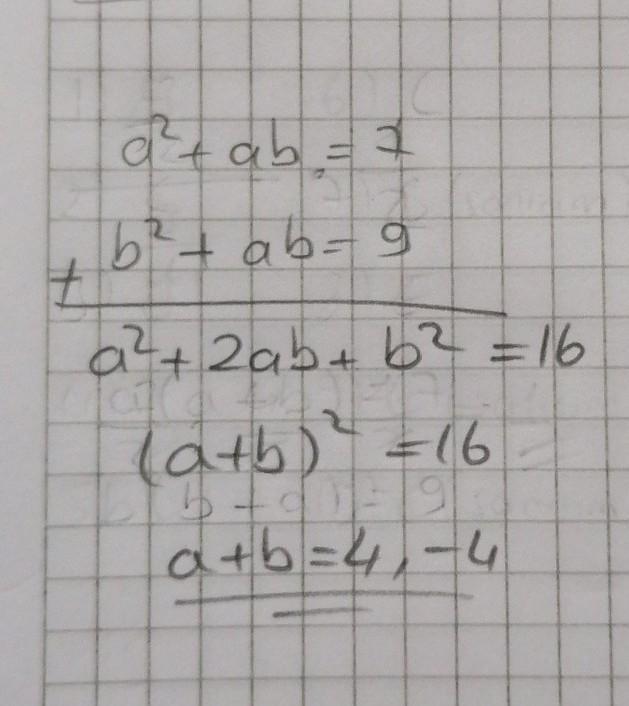 a² + ab = 7
b² + ab = 9
+
a² + 2ab + b² = 16
(a+b)² = 16
a+b = 4, -4